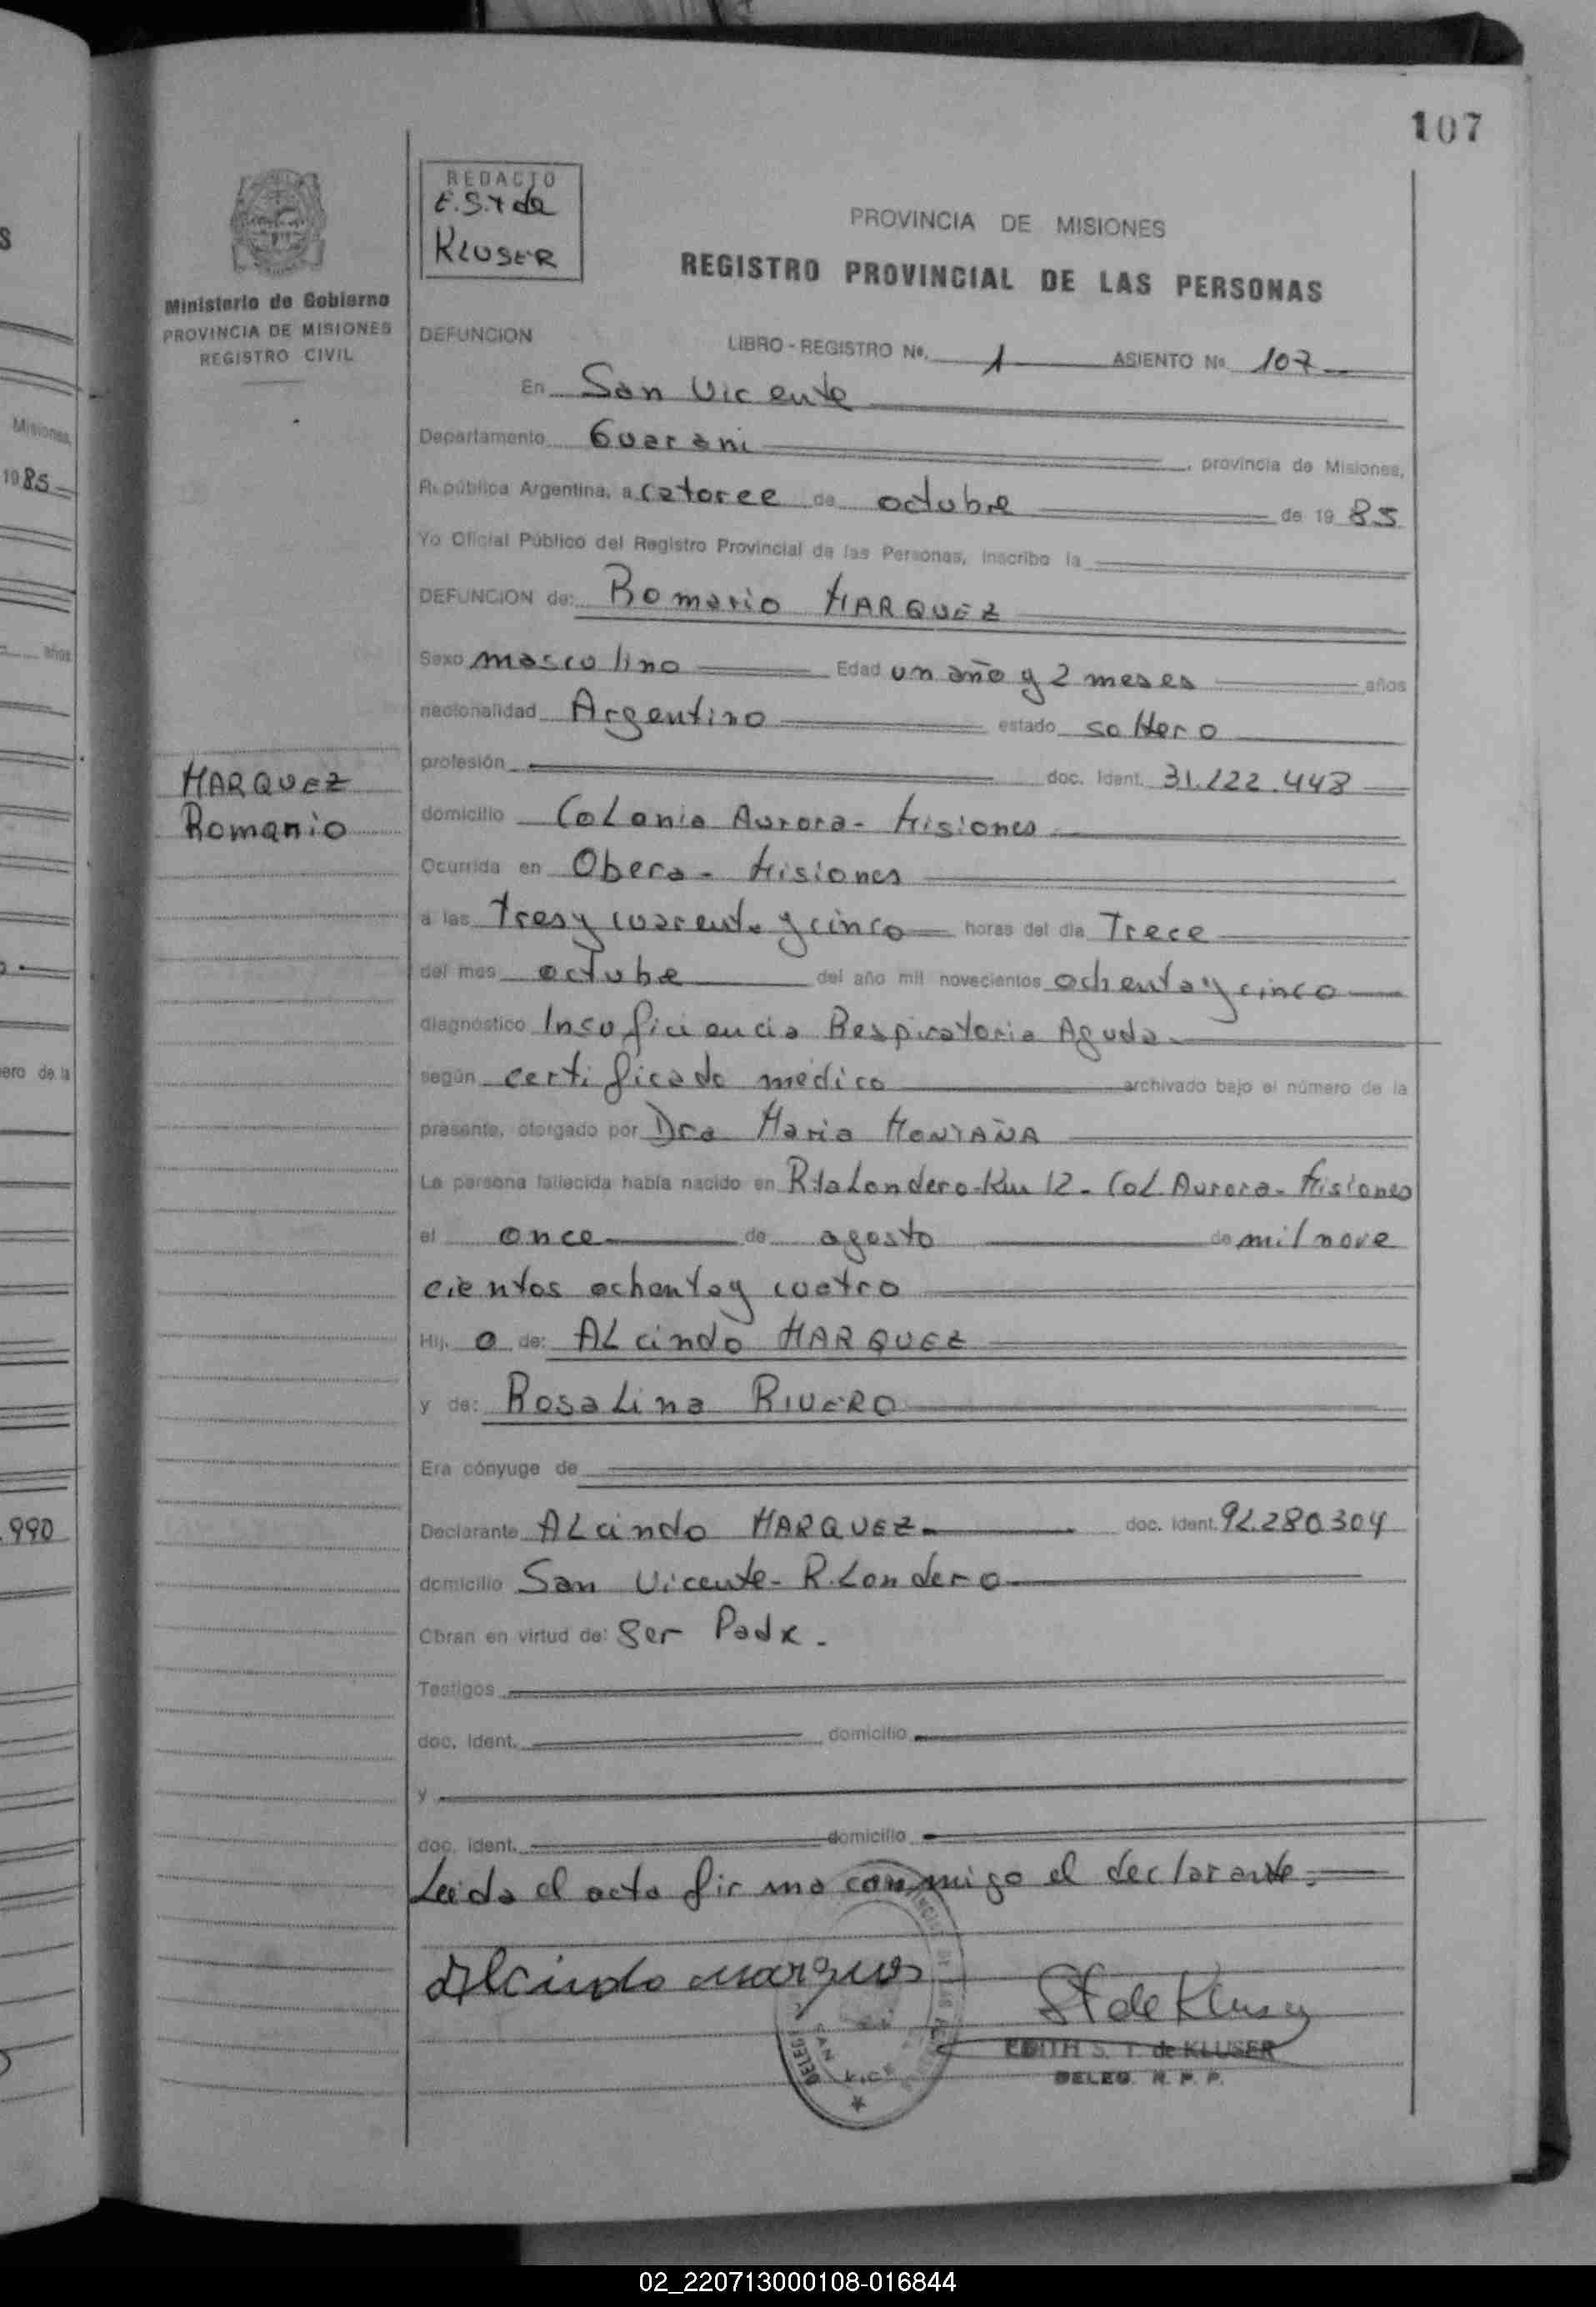 107
REDACTO
E.S.T de
KLUSER
PROVINCIA DE MISIONES
REGISTRO PROVINCIAL DE LAS PERSONAS
Ministerio de Gobierno
PROVINCIA DE MISIONES
REGISTRO CIVIL
DEFUNCION LIBRO - REGISTRO Nº. 1 ASIENTO Nº 107
En San Vicente
Departamento Guarani, provincia de Misiones,
República Argentina, a catorce de octubre de 19 85
Yo Oficial Público del Registro Provincial de las Personas, inscribo la
DEFUNCION de: Romario MARQUEZ
Sexo masculino Edad un año y 2 meses años
nacionalidad Argentino estado soltero
profesión doc. Ident. 31.122.448
MARQUEZ
Romario
domicilio Colonia Aurora - Misiones
Ocurrida en Obera - Misiones
a las tres y cuarenta y cinco horas del dia Trece
del mes octubre del año mil novecientos ochenta y cinco
diagnóstico Insuficiencia Respiratoria Aguda
según certificado medico archivado bajo el número de la
presente, otorgado por Dra Maria MONTAÑA
La persona fallecida había nacido en Rta Londero - Km 12 - Col. Aurora - Misiones
el once de agosto de mil nove
cientos ochenta y cuatro
Hij. o de: ALcindo MARQUEZ
y de: Rosalina RIVERO
Era cónyuge de
Declarante ALcindo MARQUEZ doc. Ident. 92.280.304
domicilio San Vicente - R. Londero
Obran en virtud de: Ser Padre.
Testigos
doc. Ident. domicilio
y
doc. Ident. domicilio
Leida el acta firma conmigo el declarante.
Alcindo Marques
St de Kluser
EDITH S. T. de KLUSER
DELEG. R. P. P.
Misiones,
1985
años
ero de la
.990
02_220713000108-016844